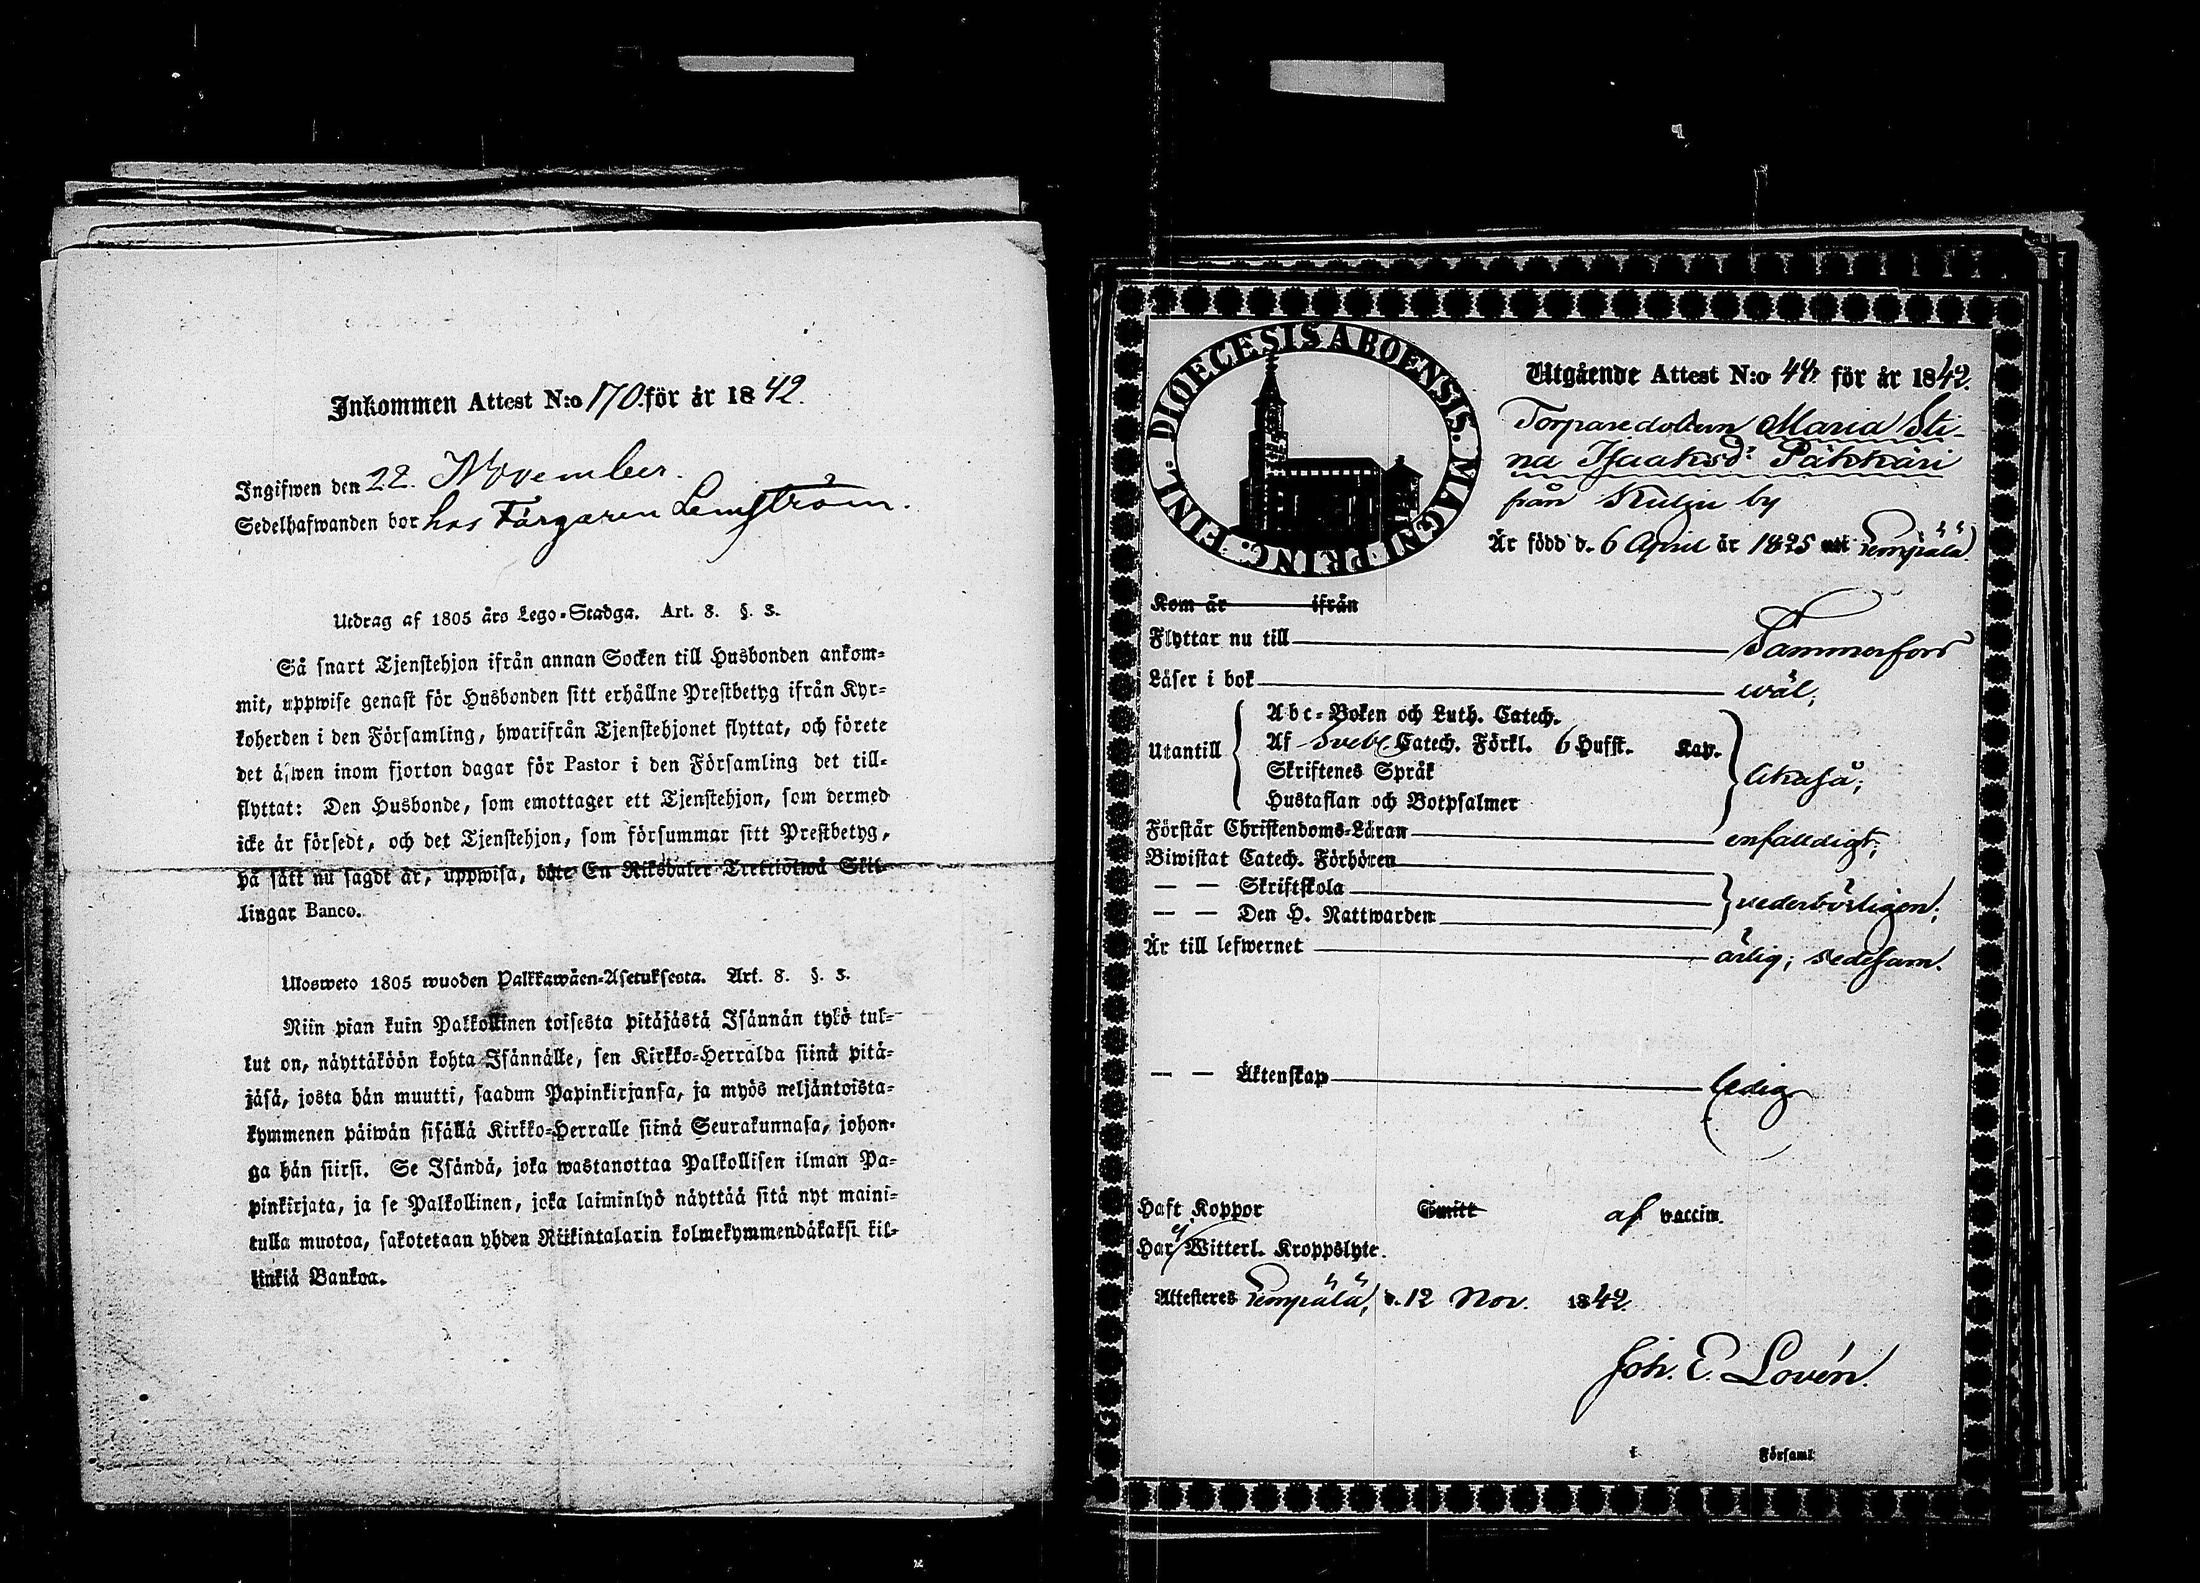 Inkommen Attest N:o 170. för år 1842.
Ingifwen den 22. November.
Sedelhafwanden bor hos Färgaren Lemström.
Utdrag af 1805 års Lego-Stadga. Art. 8. §. 3.
Så snart Tjenstehjon ifrån annan Socken till Husbonden ankom-
mit, uppwise genast för Husbonden sitt erhållne Prestbetyg ifrån Kyr-
koherden i den Församling, hwarifrån Tjenstehjonet flyttat, och förete
det äfwen inom fjorton dagar för Pastor i den Församling det till-
flyttat: Den Husbonde, som emottager ett Tjenstehjon, som dermed
icke är försedt, och det Tjenstehjon, som försummar sitt Prestbetyg,
på sätt nu sagdt är, uppwisa, böte En Riksdaler Trettiotwå Skil-
lingar Banco.
Ulosweto 1805 wuoden Palkkawäen-Asetuksesta. Art. 8. §. 3.
Niin pian kuin Palkollinen toisesta pitäjästä Isännän tykö tul-
lut on, näyttäköön kohta Isännälle, sen Kirkko-Herralda siinä pitä-
jäsä, josta hän muutti, saadun Papinkirjansa, ja myös neljäntoista-
kymmenen päiwän sisällä Kirkko-Herralle siinä Seurakunnasa, johon-
ga hän siirsi. Se Isändä, joka wastanottaa Palkollisen ilman Pa-
pinkirjata, ja se Palkollinen, joka laiminlyö näyttää sitä nyt maini-
tulla muotoa, sakotetaan yhden Riikintalarin kolmekymmendäkaksi kil-
linkiä Bankoa.
DIOECESIS ABOENSIS. MAGNI PRINC. FINL.
Utgående Attest N:o 44 för år 1842.
Torparedottren Maria Sti-
na Isaaksdr Päkkäri
från Kulju by
Är född d. 6 April år 1825 uti Lempälä
Kom år ifrån
Flyttar nu till Tammerfors
Läser i bok wäl;
Utantill
Abc-Boken och Luth. Catech.
Af Sveb. Catech. Förkl. 6 Hufst. Kap.
Skriftenes Språk
Hustaflan och Botpsalmer
likaså;
Förstår Christendoms-Läran enfalldigt;
Biwistat Catech. Förhören
— — Skriftskola
— — Den H. Nattwarden
vederbörligen;
Är till lefwernet ärlig; sedesam.
— — Äktenskap ledig
Haft Koppor Smitt af vaccin.
Har ej Witterl. Kroppslyte.
Attesteres Lempälä, d. 12 Nov. 1842.
Joh. E. Lovén.
i Församl